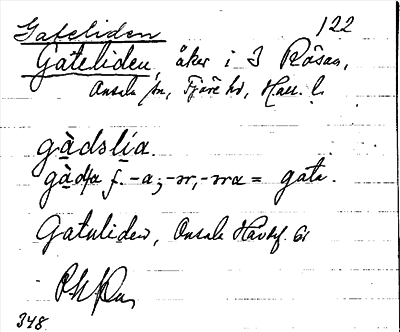 Gateliden 122
Gateliden, åker i 3 Råsan,
Onsala sn, Fjäre hd, Hall. l.
gàdslía.
gàda f. -a; -ər, -əra = gata.
Gataliden, Onsala Havdsf. 61
348